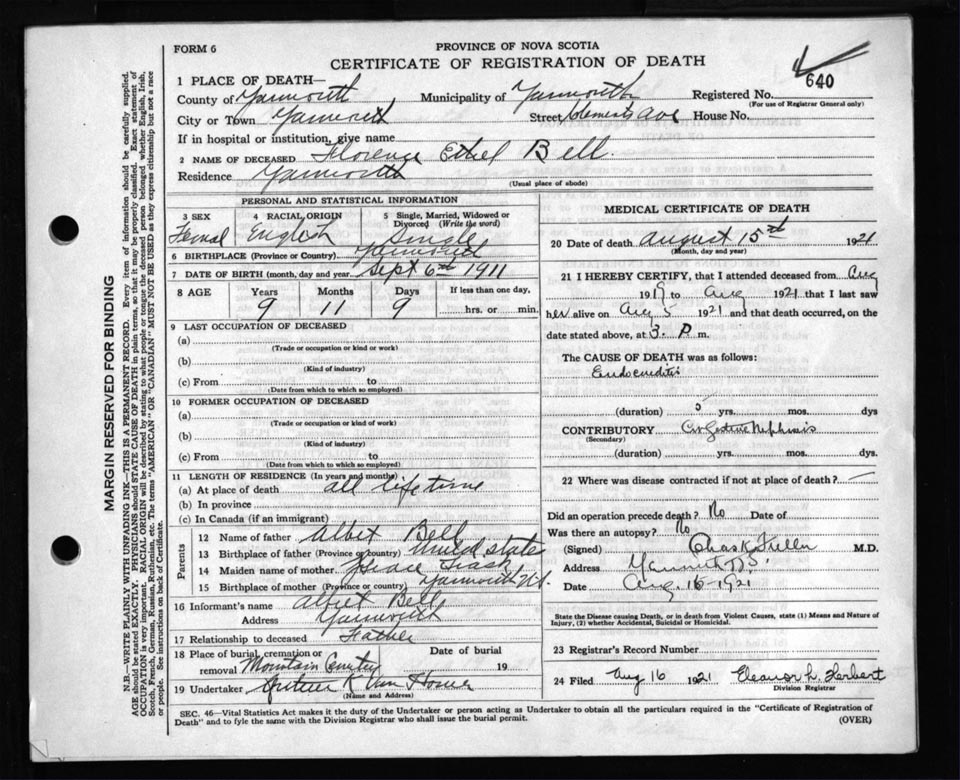 FORM 6
PROVINCE OF NOVA SCOTIA
CERTIFICATE OF REGISTRATION OF DEATH
640
1 PLACE OF DEATH—
County of Yarmouth Municipality of Yarmouth Registered No.
(For use of Registrar General only)
City or Town Yarmouth Street Clements Ave House No.
If in hospital or institution, give name
2 NAME OF DECEASED Florence Ethel Bell.
Residence Yarmouth
(Usual place of abode)
PERSONAL AND STATISTICAL INFORMATION
3 SEX Femal
4 RACIAL ORIGIN English
5 Single, Married, Widowed or Divorced (Write the word) Single
6 BIRTHPLACE (Province or Country) Yarmouth
7 DATE OF BIRTH (month, day and year) Sept 6th 1911
8 AGE Years Months Days If less than one day,
9 11 9 hrs. or min.
9 LAST OCCUPATION OF DECEASED
(a)
(Trade or occupation or kind or work)
(b)
(Kind of industry)
(c) From to
(Date from which to which so employed)
10 FORMER OCCUPATION OF DECEASED
(a)
(Trade or occupation or kind of work)
(b)
(Kind of industry)
(c) From to
(Date from which to which so employed)
11 LENGTH OF RESIDENCE (In years and months)
(a) At place of death all life time
(b) In province
(c) In Canada (if an immigrant)
Parents
12 Name of father Albert Bell
13 Birthplace of father (Province or country) United States
14 Maiden name of mother Trask
15 Birthplace of mother (Province or country) Yarmouth N.S.
16 Informant's name Albert Bell
Address Yarmouth
17 Relationship to deceased Father
18 Place of burial, cremation or removal Mountain Cemetery
Date of burial 19
19 Undertaker Van Horne
(Name and Address)
MEDICAL CERTIFICATE OF DEATH
20 Date of death August 15th 1921
(Month, day and year)
21 I HEREBY CERTIFY, that I attended deceased from Aug
1919 to Aug 1921 that I last saw
her alive on Aug 5 1921 and that death occurred, on the
date stated above, at 3 P. m.
The CAUSE OF DEATH was as follows:
Endocarditis
(duration) 5 yrs. mos. dys
CONTRIBUTORY
(Secondary)
(duration) yrs. mos. dys.
22 Where was disease contracted if not at place of death?
Did an operation precede death? No Date of
Was there an autopsy? No
(Signed) Chas K Fuller M.D.
Address Yarmouth N.S.
Date Aug. 16-1921
State the Disease causing Death, or in death from Violent Causes, state (1) Means and Nature of Injury, (2) whether Accidental, Suicidal or Homicidal.
23 Registrar's Record Number
24 Filed Aug 16 1921 Eleanor L. Herbert
Division Registrar
SEC. 46—Vital Statistics Act makes it the duty of the Undertaker or person acting as Undertaker to obtain all the particulars required in the "Certificate of Registration of
Death" and to fyle the same with the Division Registrar who shall issue the burial permit.
(OVER)
MARGIN RESERVED FOR BINDING
N.B.—WRITE PLAINLY WITH UNFADING INK—THIS IS A PERMANENT RECORD. Every item of information should be carefully supplied.
AGE should be stated EXACTLY. PHYSICIANS should STATE CAUSE OF DEATH in plain terms, so that it may be properly classified. Exact statement of
OCCUPATION is very important. RACIAL ORIGIN will be described by stating to what people or tongue the deceased person belonged whether English, Irish,
Scotch, French, German, Russian, Ruthenian, etc. The terms "AMERICAN" OR "CANADIAN" MUST NOT BE USED as they express citizenship but not a race
or people. See instructions on back of Certificate.